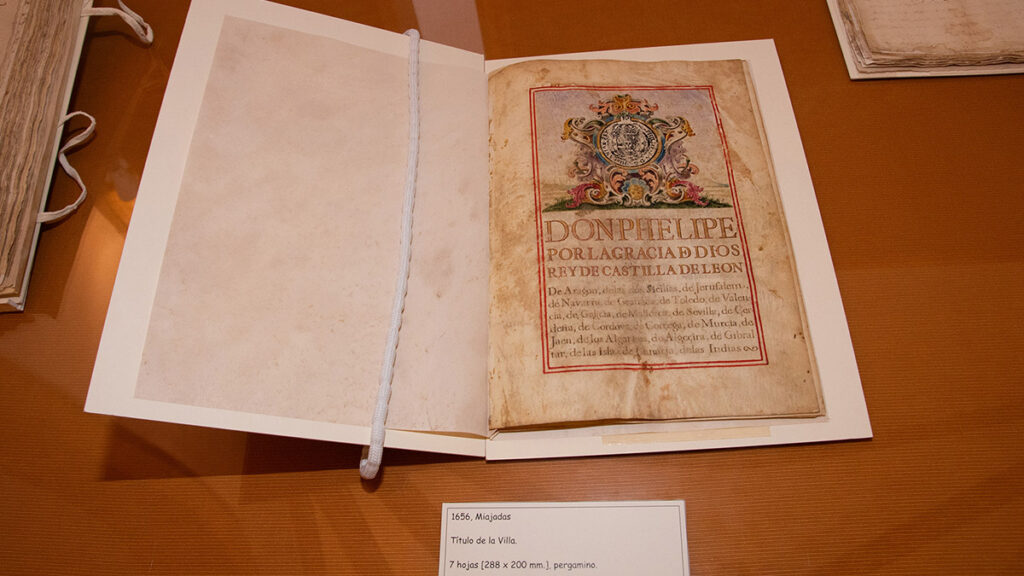 DON PHELIPE
POR LA GRACIA Đ DIOS
REY DE CASTILLA DE LEON
De Aragon, de las dos Sicilias, de Jerusalem,
de Navarra, de Granada, de Toledo, de Valen
cia, de Galicia, de Mallorca, de Sevilla, de Cer
deña, de Cordova, de Corcega, de Murcia, de
Jaen, de los Algarbes, de Algecira, de Gibral
tar, de las Islas de Canaria, de las Indias
1656, Miajadas
Título de la Villa.
7 hojas [288 x 200 mm.], pergamino.